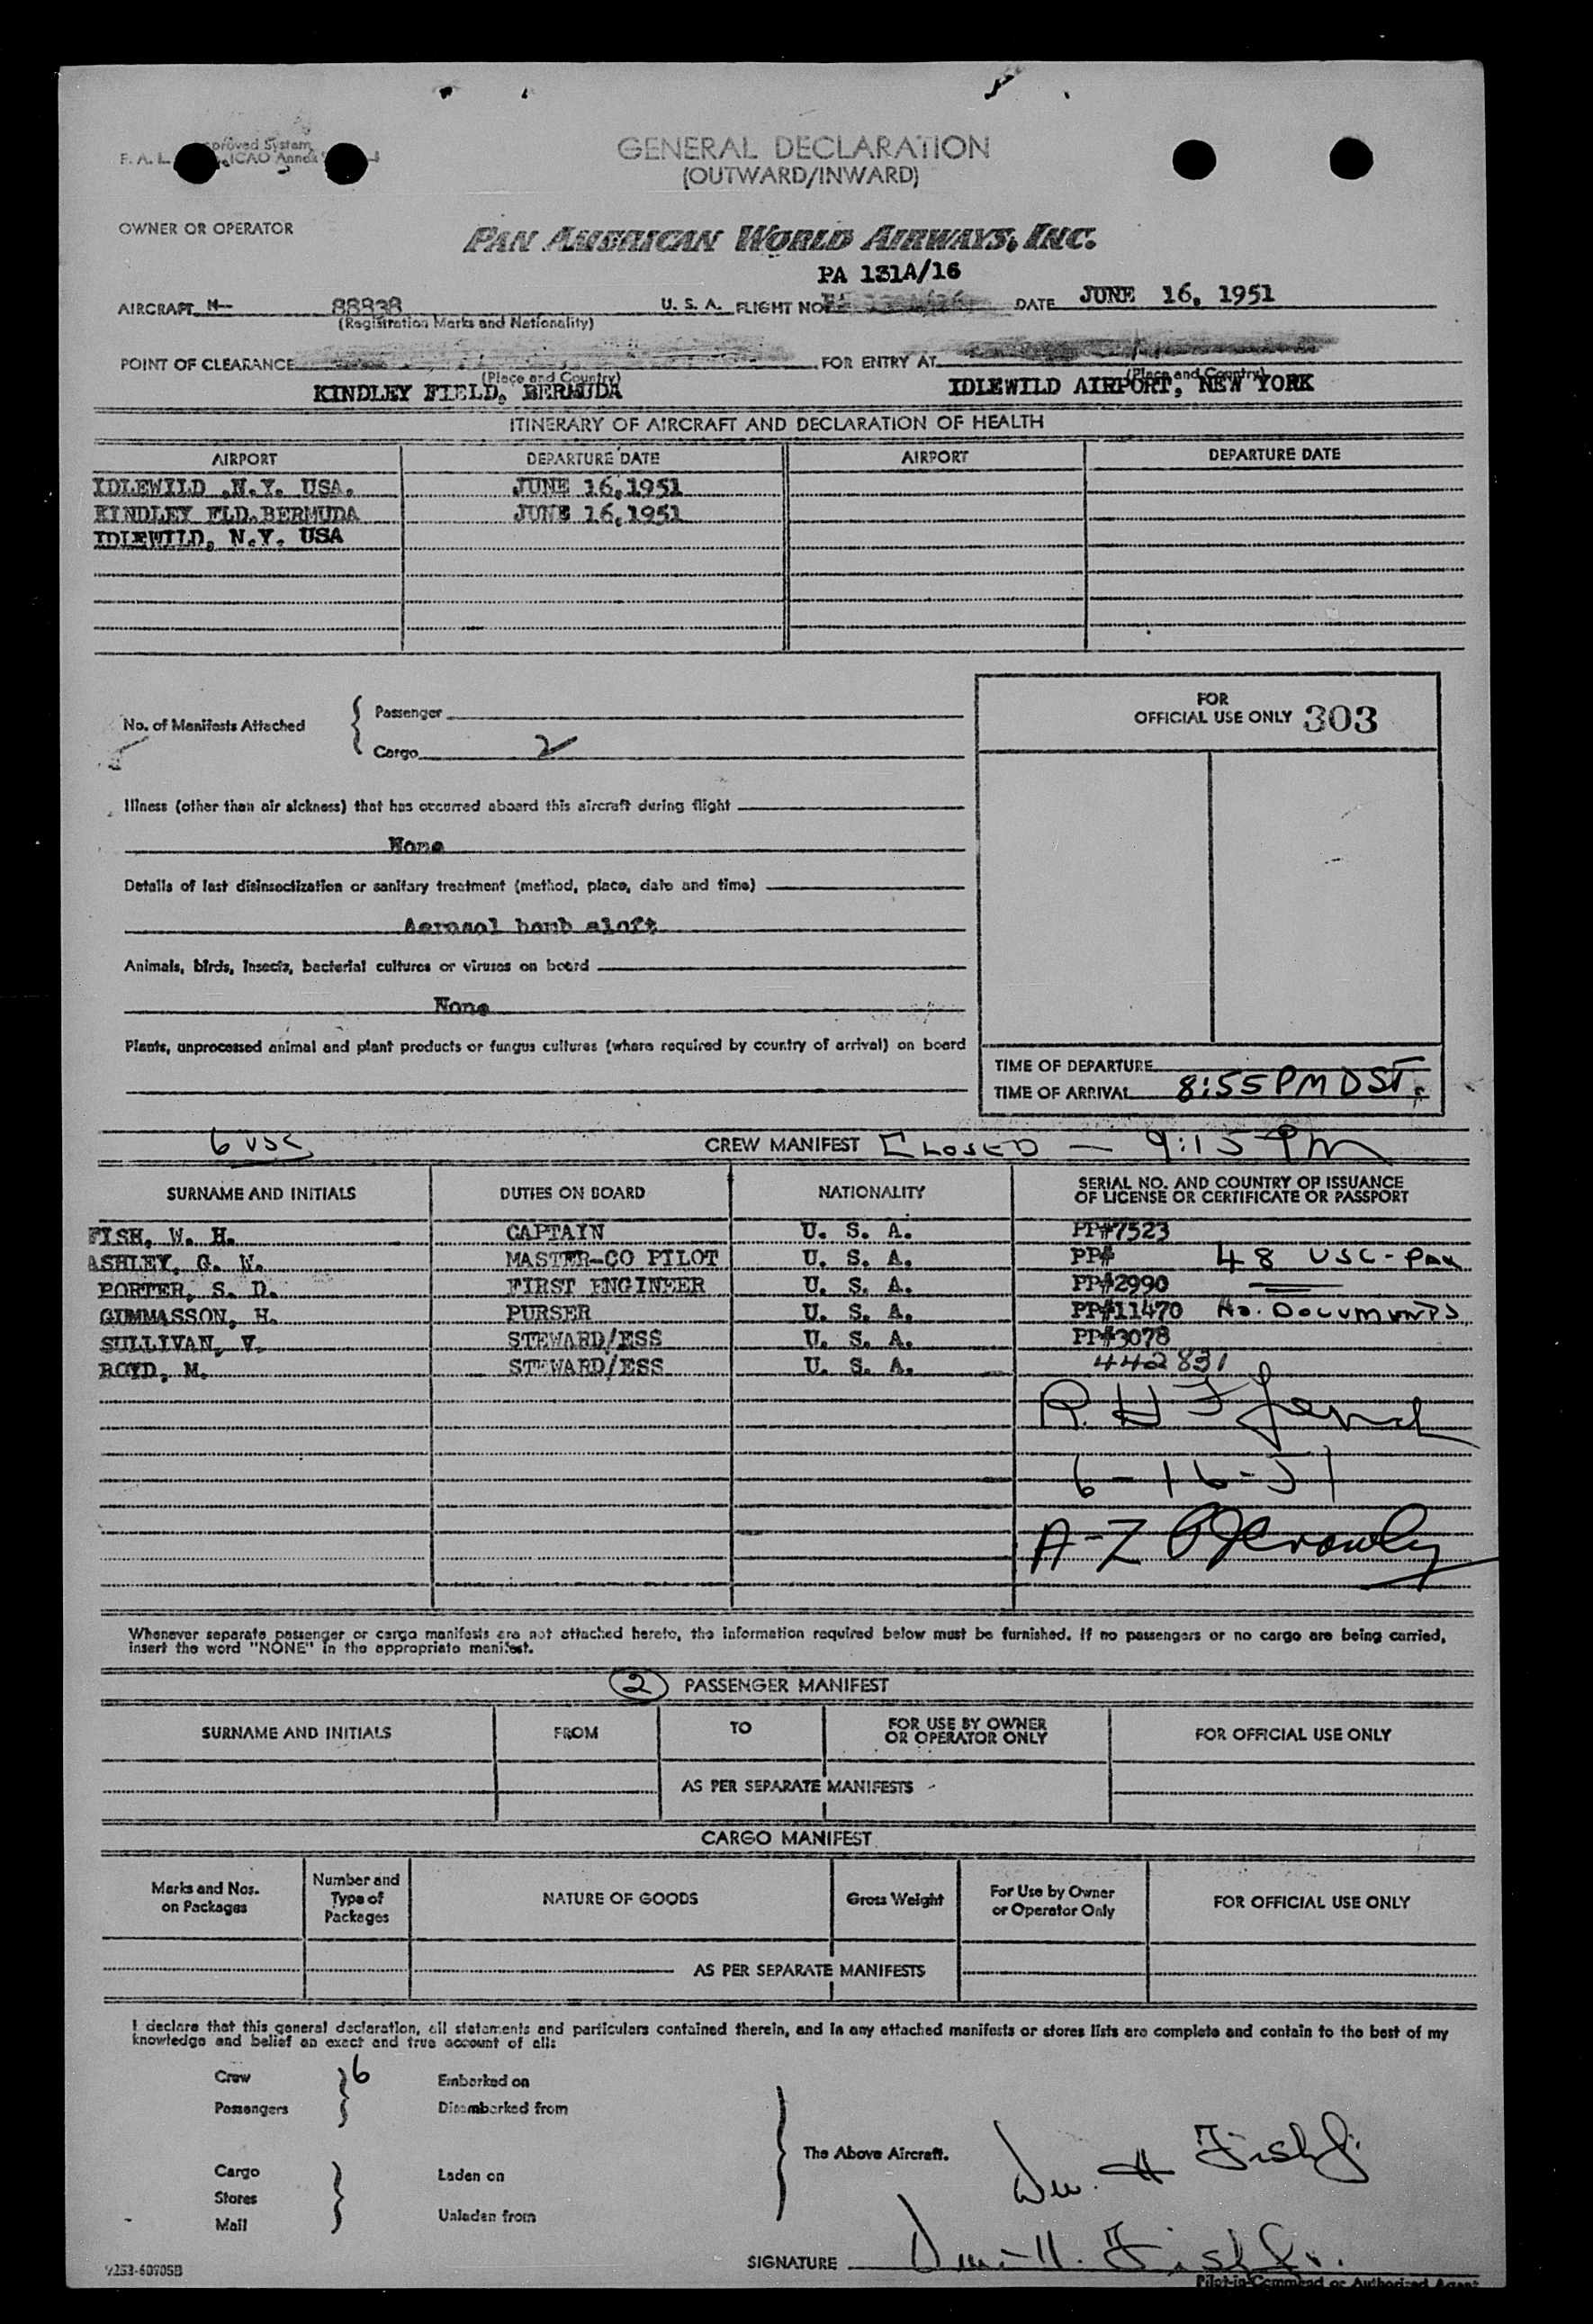 F. A. L. proved System
ICAO Annex
GENERAL DECLARATION
(OUTWARD/INWARD)
OWNER OR OPERATOR
PAN AMERICAN WORLD AIRWAYS, INC.
PA 131A/16
AIRCRAFT N-- 88838 U. S. A. FLIGHT NO. DATE JUNE 16, 1951
(Registration Marks and Nationality)
POINT OF CLEARANCE FOR ENTRY AT
(Place and Country) (Place and Country)
KINDLEY FIELD, BERMUDA IDLEWILD AIRPORT, NEW YORK
ITINERARY OF AIRCRAFT AND DECLARATION OF HEALTH
AIRPORT DEPARTURE DATE AIRPORT DEPARTURE DATE
IDLEWILD ,N.Y. USA. JUNE 16,1951
KINDLEY FLD.BERMUDA JUNE 16,1951
IDLEWILD, N.Y. USA
FOR
OFFICIAL USE ONLY 303
No. of Manifests Attached { Passenger
Cargo 2
Illness (other than air sickness) that has occurred aboard this aircraft during flight
None
Details of last disinsectization or sanitary treatment (method, place, date and time)
Aerosol bomb aloft
Animals, birds, insects, bacterial cultures or viruses on board
None
Plants, unprocessed animal and plant products or fungus cultures (where required by country of arrival) on board
TIME OF DEPARTURE
TIME OF ARRIVAL 8:55 PM DST.
6 USC CREW MANIFEST CLOSED — 9:15 PM
SURNAME AND INITIALS DUTIES ON BOARD NATIONALITY SERIAL NO. AND COUNTRY OF ISSUANCE
OF LICENSE OR CERTIFICATE OR PASSPORT
FISH, W. H. CAPTAIN U. S. A. PP#7523
ASHLEY, G. W. MASTER-CO PILOT U. S. A. PP# 48 USC-PAX
PORTER, S. D. FIRST ENGINEER U. S. A. PP#2990
GIMMASSON, H. PURSER U. S. A. PP#11470 No. DOCUMENTS
SULLIVAN, V. STEWARD/ESS U. S. A. PP#3078
BOYD, M. STEWARD/ESS U. S. A. 442831
R. H.
6-16-51
A-Z Crowley
Whenever separate passenger or cargo manifests are not attached hereto, the information required below must be furnished. If no passengers or no cargo are being carried,
insert the word "NONE" in the appropriate manifest.
2 PASSENGER MANIFEST
SURNAME AND INITIALS FROM TO FOR USE BY OWNER
OR OPERATOR ONLY FOR OFFICIAL USE ONLY
AS PER SEPARATE MANIFESTS
CARGO MANIFEST
Marks and Nos.
on Packages Number and
Type of
Packages NATURE OF GOODS Gross Weight For Use by Owner
or Operator Only FOR OFFICIAL USE ONLY
AS PER SEPARATE MANIFESTS
I declare that this general declaration, all statements and particulars contained therein, and in any attached manifests or stores lists are complete and contain to the best of my
knowledge and belief an exact and true account of all:
Crew 6 Embarked on
Passengers Disembarked from
The Above Aircraft. Wm. H Fish Jr.
Cargo Laden on
Stores
Mail Unladen from
SIGNATURE Wm. H. Fish Jr.
Pilot-in-Command or Authorized Agent